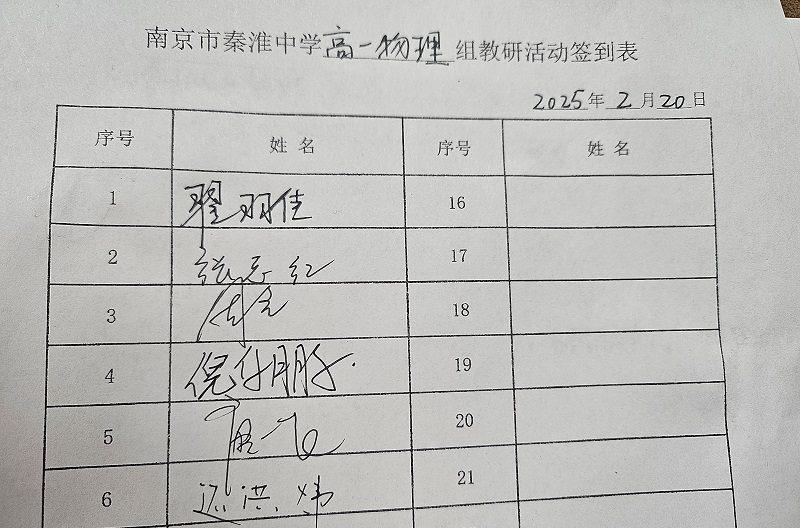 南京市秦淮中学高一物理组教研活动签到表
2025年2月20日
序号 姓名 序号 姓名
1 翟羽佳 16
2 17
3 18
4 19
5 20
6 21